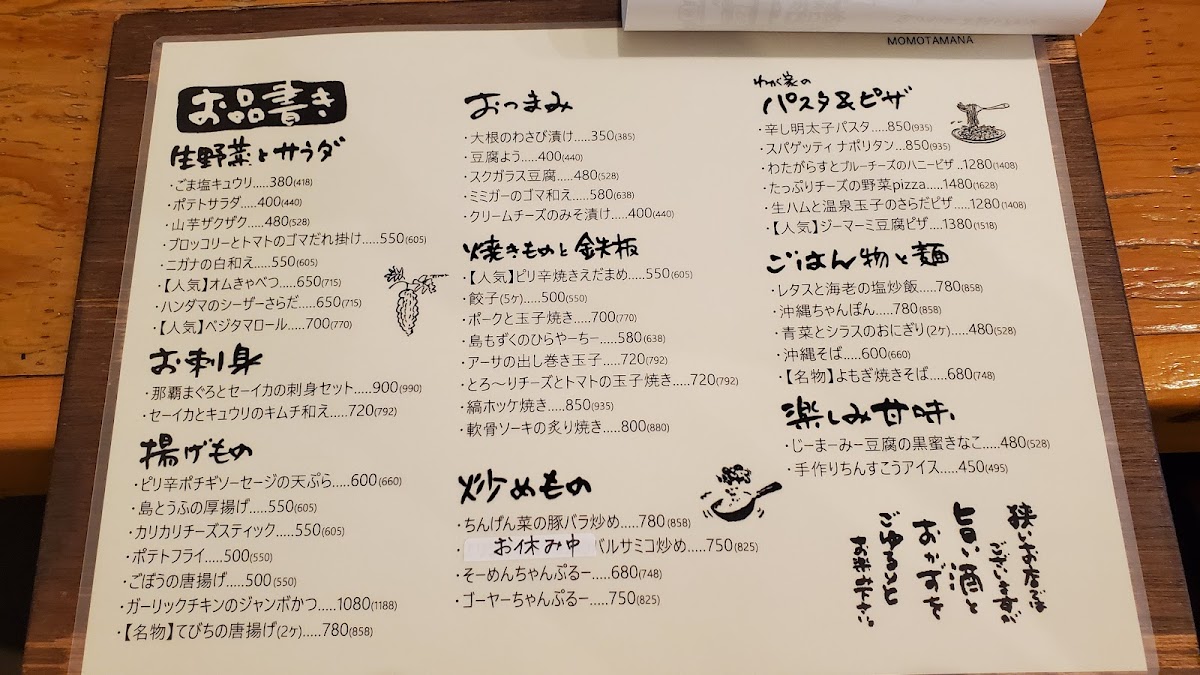 MOMOTAMANA
お品書き
生野菜とサラダ
・ごま塩キュウリ.....380(418)
・ポテサラダ.....400(440)
・山芋ザクザク.....480(528)
・ブロッコリーとトマトのゴマだれ掛け.....550(605)
・ニガナの白和え.....550(605)
・【人気】オムきゃべつ.....650(715)
・ハンダマのシーザーさらだ.....650(715)
・【人気】ベジタマロール.....700(770)
お刺身
・那覇まぐろとセーイカの刺身セット.....900(990)
・セーイカとキュウリのキムチ和え.....720(792)
揚げもの
・ピリ辛ポチギソーセージの天ぷら.....600(660)
・島とうふの厚揚げ.....550(605)
・カリカリチーズスティック.....550(605)
・ポテトフライ.....500(550)
・ごぼうの唐揚げ.....500(550)
・ガーリックチキンのジャンボかつ.....1080(1188)
・【名物】てびちの唐揚げ(2ヶ).....780(858)
おつまみ
・大根のわさび漬け.....350(385)
・豆腐よう.....400(440)
・スクガラス豆腐.....480(528)
・ミミガーのゴマ和え.....580(638)
・クリームチーズのみそ漬け.....400(440)
焼きものと鉄板
・【人気】ピリ辛焼きえだまめ.....550(605)
・餃子(5ヶ).....500(550)
・ポークと玉子焼き.....700(770)
・島もずくのひらやーちー.....580(638)
・アーサの出し巻き玉子.....720(792)
・とろ～りチーズとトマトの玉子焼き.....720(792)
・縞ホッケ焼き.....850(935)
・軟骨ソーキの炙り焼き.....800(880)
炒めもの
・ちんげん菜の豚バラ炒め.....780(858)
・お休み中 バルサミコ炒め.....750(825)
・そーめんちゃんぷるー.....680(748)
・ゴーヤーちゃんぷるー.....750(825)
わが家の
パスタ&ピザ
・辛し明太子パスタ.....850(935)
・スパゲッティ ナポリタン...850(935)
・わたがらすとブルーチーズのハニーピザ..1280(1408)
・たっぷりチーズの野菜pizza.....1480(1628)
・生ハムと温泉玉子のさらだピザ.....1280(1408)
・【人気】ジーマーミ豆腐ピザ....1380(1518)
ごはん物と麺
・レタスと海老の塩炒飯.....780(858)
・沖縄ちゃんぽん.....780(858)
・青菜とシラスのおにぎり(2ヶ).....480(528)
・沖縄そば.....600(660)
・【名物】よもぎ焼きそば.....680(748)
楽しみ甘味
・じーまーみー豆腐の黒蜜きなこ.....480(528)
・手作りちんすこうアイス.....450(495)
狭いお店では
ございますが
旨い酒と
おかずを
ごゆるりと
お楽み下さい